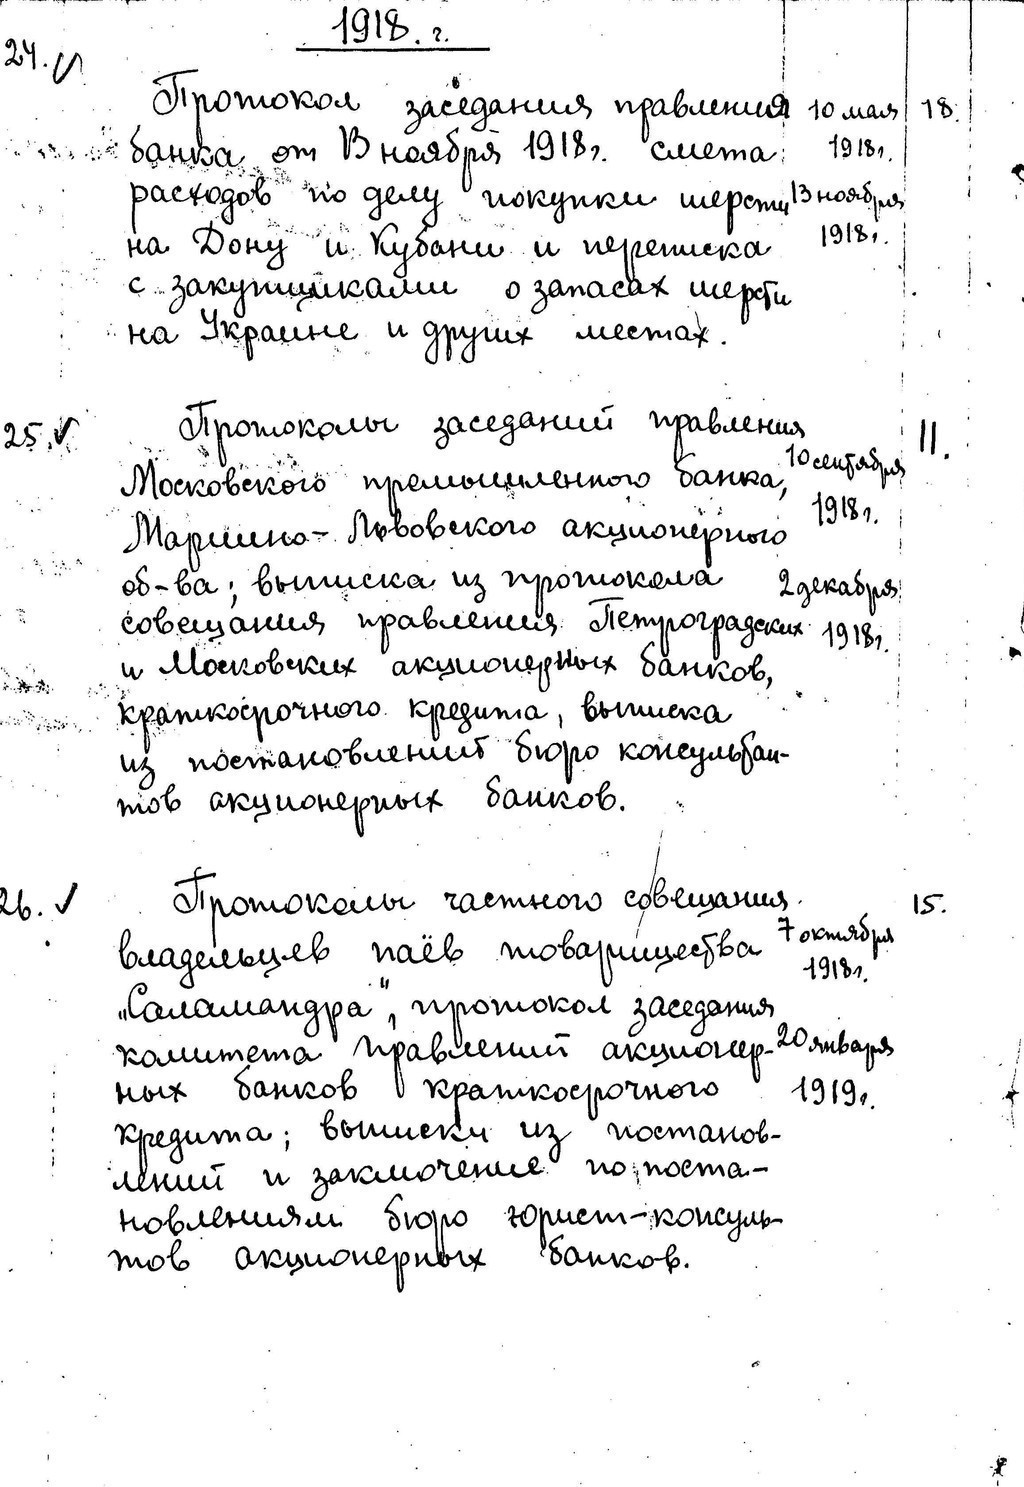 1918. г.
24. Протокол заседания правления 10 мая 18.
банка от 13 ноября 1918г. смета 1918г.
расходов по делу покупки шерсти 13 ноября
на Дону и Кубани и переписка 1918г.
с закупщиками о запасах шерсти
на Украине и других местах.
25. Протоколы заседаний правления 11.
Московского промышленного банка, 10 сентября
1918г.
Марьино-Львовского акционерного
об-ва; выписка из протокола 2 декабря
совещания правления Петроградских 1918г.
и Московских акционерных банков,
краткосрочного кредита, выписка
из постановлений бюро консультан-
тов акционерных банков.
26. Протоколы частного совещания 15.
владельцев паёв товарищества 7 октября
1918г.
„Саламандра", протокол заседания
комитета правлений акционер- 20 января
ных банков краткосрочного 1919г.
кредита; выписки из постанов-
лений и заключение по поста-
новлениям бюро юрист-консуль-
тов акционерных банков.